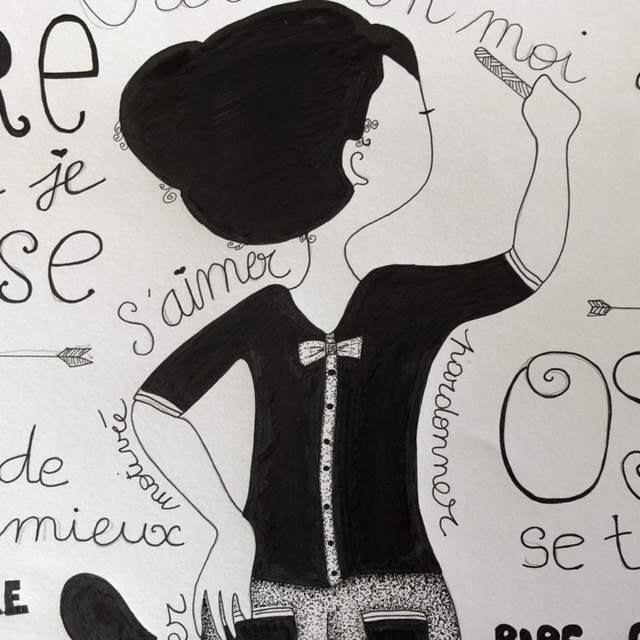 en moi
RE
je
se
s'aimer
pardonner
motivée
OS
de
mieux
se t